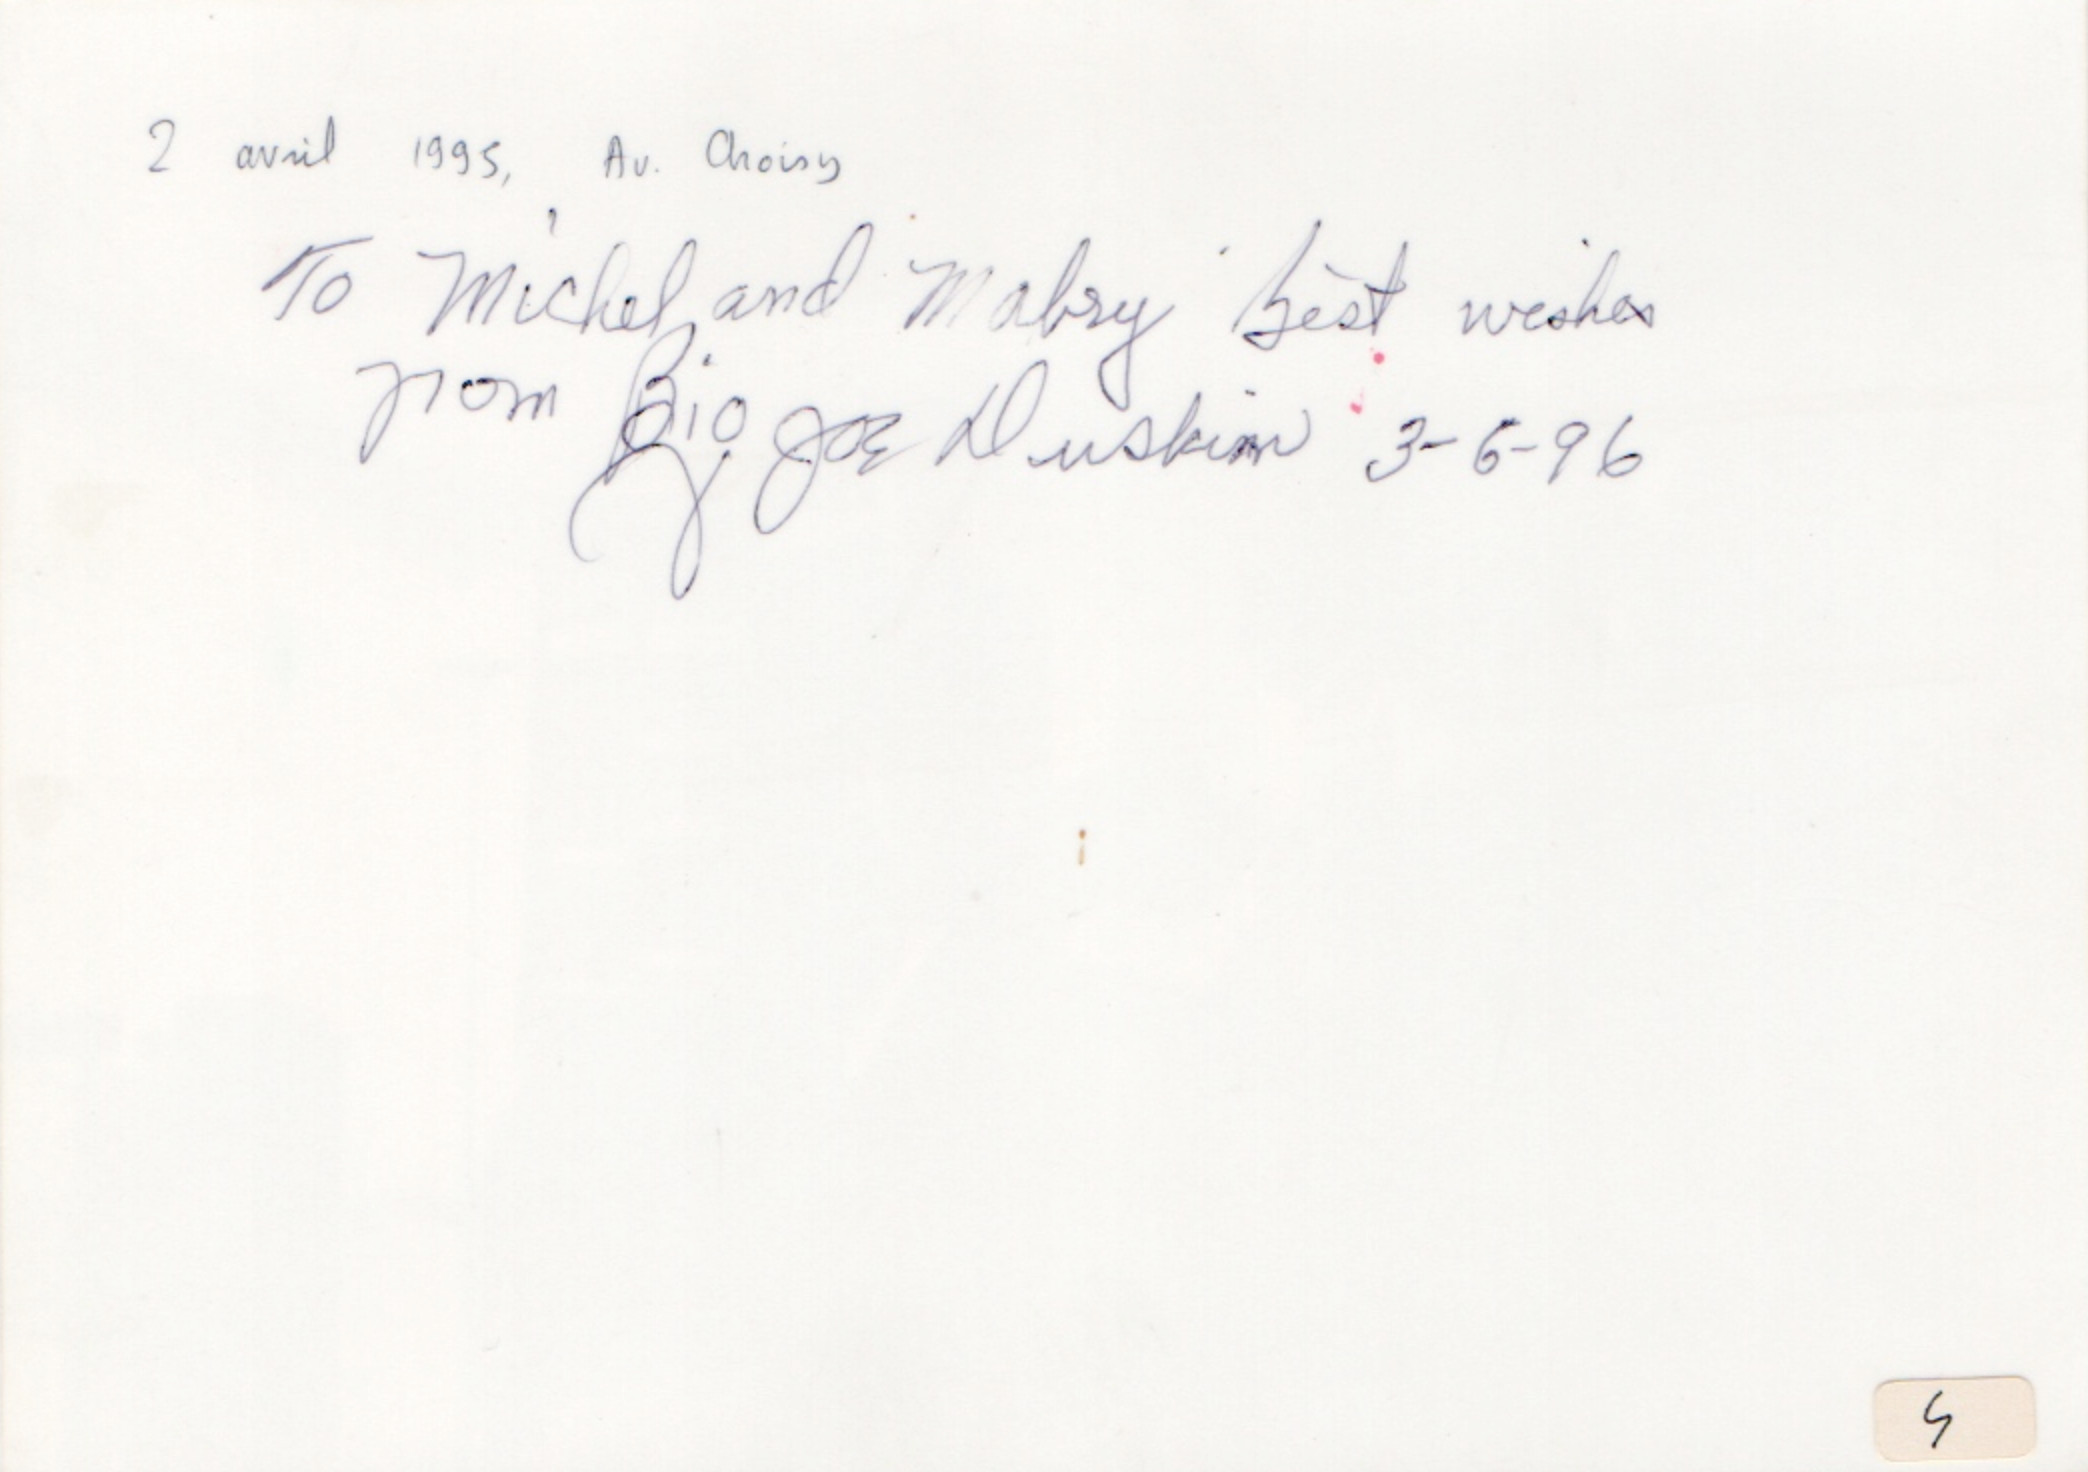 2 avril 1995, Av. Choisy
To Michel and Mabry best wishes
from Big Joe Duskin 3-6-96